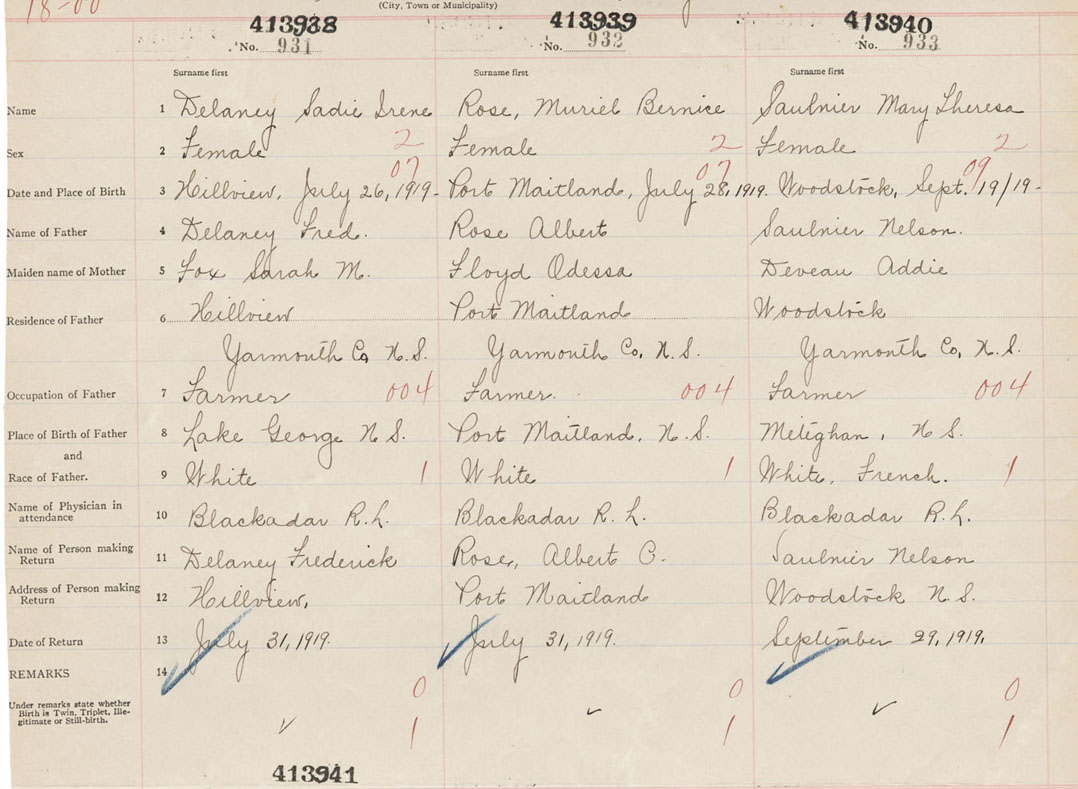 18-00
(City, Town or Municipality)
413938 413939 413940
No. 931 No. 932 No. 933
Surname first Surname first Surname first
Name 1 Delaney Sadie Irene Rose, Muriel Bernice Saulnier Mary Theresa
Sex 2 Female 2 Female 2 Female 2
07 07 09
Date and Place of Birth 3 Hillview, July 26, 1919- Port Maitland, July 28, 1919. Woodstock, Sept. 19/19-
Name of Father 4 Delaney Fred. Rose Albert Saulnier Nelson.
Maiden name of Mother 5 Fox Sarah M. Floyd Odessa Deveau Addie
Residence of Father 6 Hillview Port Maitland Woodstock
Yarmouth Co, N.S. Yarmouth Co, N.S. Yarmouth Co, N.S.
Occupation of Father 7 Farmer 004 Farmer. 004 Farmer 004
Place of Birth of Father 8 Lake George N S. Port Maitland, N.S. Meteghan, N S.
and
Race of Father. 9 White 1 White 1 White, French. 1
Name of Physician in
attendance 10 Blackadar R.L. Blackadar R.L. Blackadar R.L.
Name of Person making
Return 11 Delaney Frederick Rose, Albert C. Saulnier Nelson
Address of Person making
Return 12 Hillview, Port Maitland Woodstock N.S.
Date of Return 13 July 31, 1919. July 31, 1919. September 29, 1919.
REMARKS 14
0 0 0
Under remarks state whether
Birth is Twin, Triplet, Ille-
gitimate or Still-birth.
1 1 1
413941